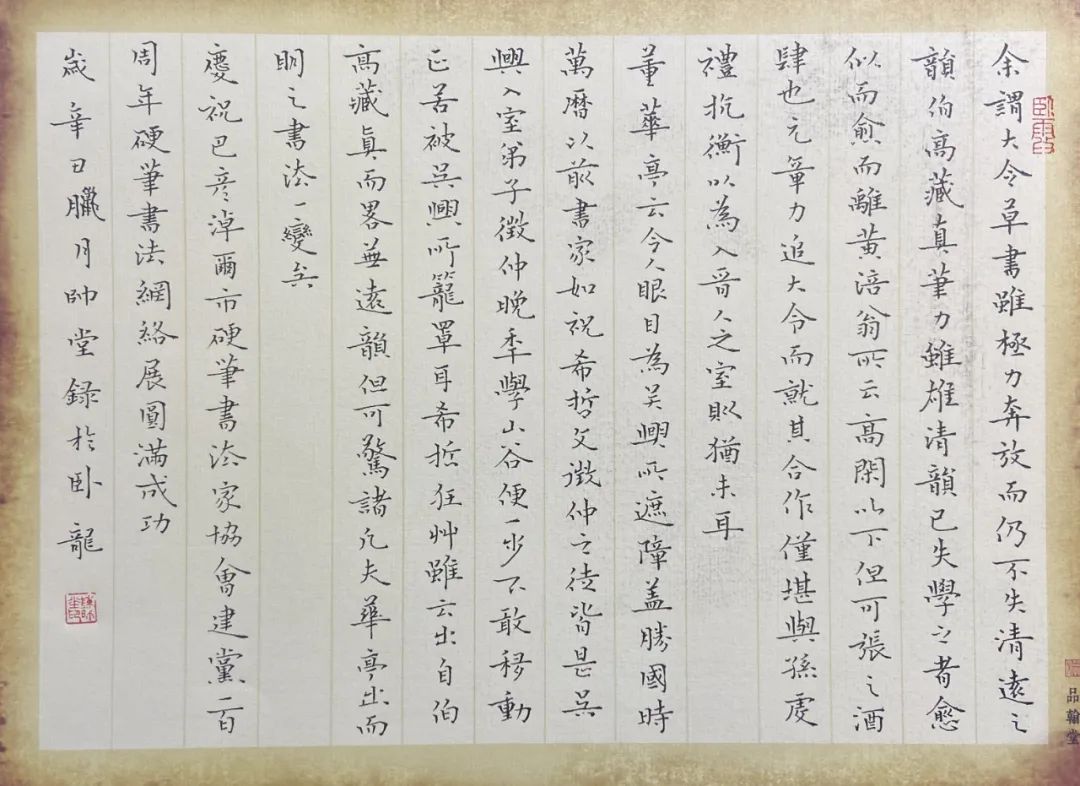 余謂大令草書雖極力奔放而仍不失清遠之
韻伯高藏真筆力雖雄清韻已失學之者愈
似而愈而離黃涪翁所云高閑以下但可張之酒
肆也元章力追大令而就其合作僅堪與孫虔
禮抗衡以為入晉人之室則猶未耳
董華亭云今人眼目為吴興所遮障盖勝國時
萬曆以前書家如祝希哲文徵仲之徒皆是吴
興入室弟子徵仲晚年學山谷便一步不敢移動
正苦被吴興所籠罩耳希哲狂艸雖云出自伯
高藏真而畧無遠韻但可驚諸凡夫華亭出而
明之書法一變矣
慶祝巴彦淖爾市硬筆書法家協會建黨一百
周年硬筆書法網絡展圓滿成功
歲辛丑臘月帥堂録於卧龍
品翰堂